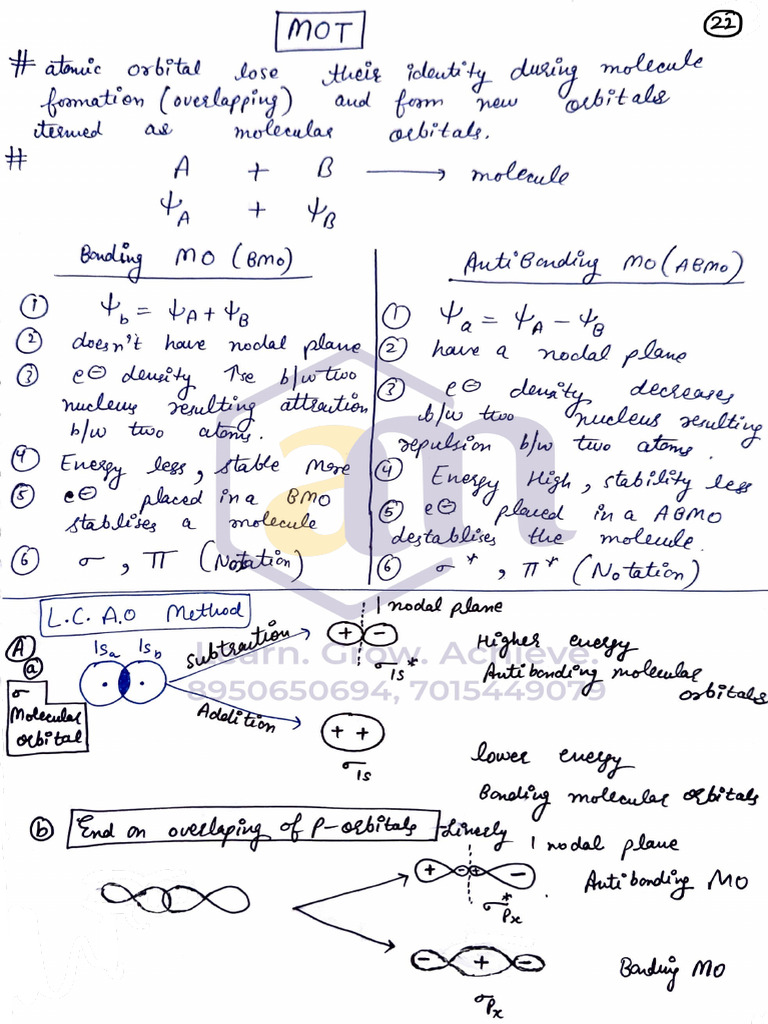 22
MOT
# atomic orbital lose their identity during molecule
formation (overlapping) and form new orbitals
termed as molecular orbitals.
# A + B ⟶ molecule
ΨA + ΨB
Bonding MO (BMO)
① Ψb = ΨA + ΨB
② doesn't have nodal plane
③ e⊖ density ↑se b/w two
nucleus resulting attraction
b/w two atoms.
④ Energy less, stable more
⑤ e⊖ placed in a BMO
stablises a molecule
⑥ σ, π (Notation)
AntiBonding MO (ABMO)
① Ψa = ΨA − ΨB
② have a nodal plane
③ e⊖ density decreases
b/w two nucleus resulting
repulsion b/w two atoms.
④ Energy High, stability less
⑤ e⊖ placed in a ABMO
destablises the molecule.
⑥ σ*, π* (Notation)
L.C.A.O Method
Ⓐ
ⓐ
σ
Molecular
orbital
1sa 1sb
subtraction
Addition
1 nodal plane
+ −
σ*1s
Higher energy
Antibonding molecular
orbitals
+ +
σ1s
lower energy
Bonding molecular orbitals
am
Learn. Grow. Achieve.
8950650694, 7015449079
ⓑ End on overlaping of P-orbitals - Linerly
1 nodal plane
+ − + −
σ*Px
Antibonding MO
− + −
σPx
Bonding MO